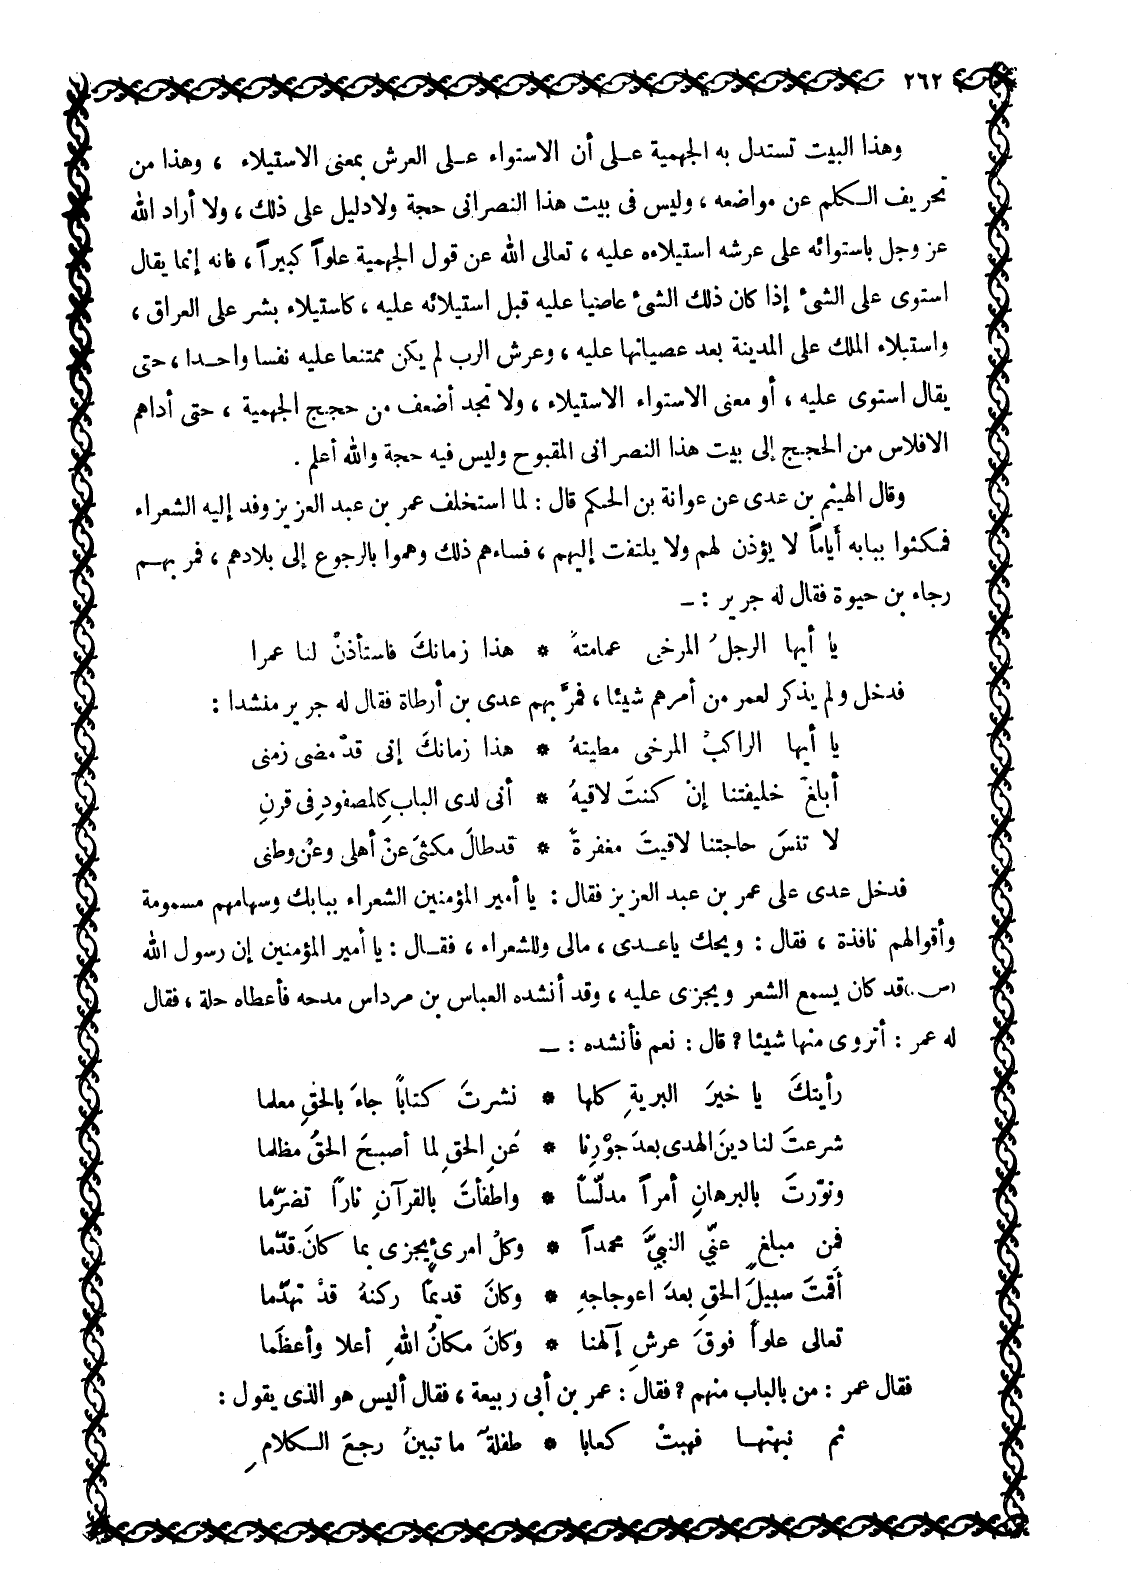 ٢٦٢
وهذا البيت تستدل به الجهمية على أن الاستواء على العرش بمعنى الاستيلاء ، وهذا من
تحريف الكلم عن مواضعه ، وليس فى بيت هذا النصرانى حجة ولادليل على ذلك ، ولا أراد الله
عز وجل باستوائه على عرشه استيلاءه عليه ، تعالى الله عن قول الجهمية علواً كبيراً ، فانه إنما يقال
استوى على الشئ إذا كان ذلك الشئ عاصيا عليه قبل استيلائه عليه ، كاستيلاء بشر على العراق ،
واستيلاء الملك على المدينة بعد عصيانها عليه ، وعرش الرب لم يكن ممتنعا عليه نفسا واحدا ، حتى
يقال استوى عليه ، أو معنى الاستواء الاستيلاء ، ولا تجد أضعف من حجج الجهمية ، حتى أداهم
الافلاس من الحجج إلى بيت هذا النصرانى المقبوح وليس فيه حجة والله أعلم .
وقال الهيثم بن عدى عن عوانة بن الحكم قال : لما استخلف عمر بن عبد العزيز وفد إليه الشعراء
فمكثوا ببابه أياماً لا يؤذن لهم ولا يلتفت إليهم ، فساءهم ذلك وهموا بالرجوع إلى بلادهم ، فمر بهم
رجاء بن حيوة فقال له جرير : ــ
يا أيها الرجلُ المرخى عمامتهُ * هذا زمانكَ فاستأذنْ لنا عمرا
فدخل ولم يذكر لعمر من أمرهم شيئا ، فمرَّ بهم عدى بن أرطاة فقال له جرير منشدا :
يا أيها الراكبُ المرخى مطيتهُ * هذا زمانكَ إنى قدْ مضى زمنى
أبلغْ خليفتنا إنْ كنتَ لاقيهُ * أنى لدى البابِ كالمصفودِ فى قرنِ
لا تنسَ حاجتنا لاقيتَ مغفرةً * قد طالَ مكثىَ عنْ أهلى وعنْ وطنى
فدخل عدى على عمر بن عبد العزيز فقال : يا أمير المؤمنين الشعراء ببابك وسهامهم مسمومة
وأقوالهم نافذة ، فقال : ويحك ياعدى ، مالى وللشعراء ، فقال : يا أمير المؤمنين إن رسول الله
(ص.) قد كان يسمع الشعر ويجزى عليه ، وقد أنشده العباس بن مرداس مدحه فأعطاه حلة ، فقال
له عمر : أتروى منها شيئا ؟ قال : نعم فأنشده : ــ
رأيتكَ يا خيرَ البريةِ كلها * نشرتَ كتاباً جاءَ بالحقِ معلما
شرعتَ لنا دينَ الهدى بعدَ جوْرِنا * عَنِ الحقِ لما أصبحَ الحقُ مظلما
ونوّرتَ بالبرهانِ أمراً مدلّساً * واطفأتَ بالقرآنِ ناراً تضرّما
فمن مبلغٍ عنّي النبيَّ محمداً * وكلُ امرئٍ يجزى بما كانَ قدّما
أقمتَ سبيلَ الحقِ بعدَ اعوجاجهِ * وكانَ قديمًا ركنهُ قدْ تهدّما
تعالى علواً فوقَ عرشِ إلهنا * وكانَ مكانُ اللهِ أعلا وأعظما
فقال عمر : من بالباب منهم ؟ فقال : عمر بن أبى ربيعة ، فقال أليس هو الذى يقول :
ثم نبهتها فهبتْ كعابا * طفلةً ما تبينُ رجعَ الكلامِ